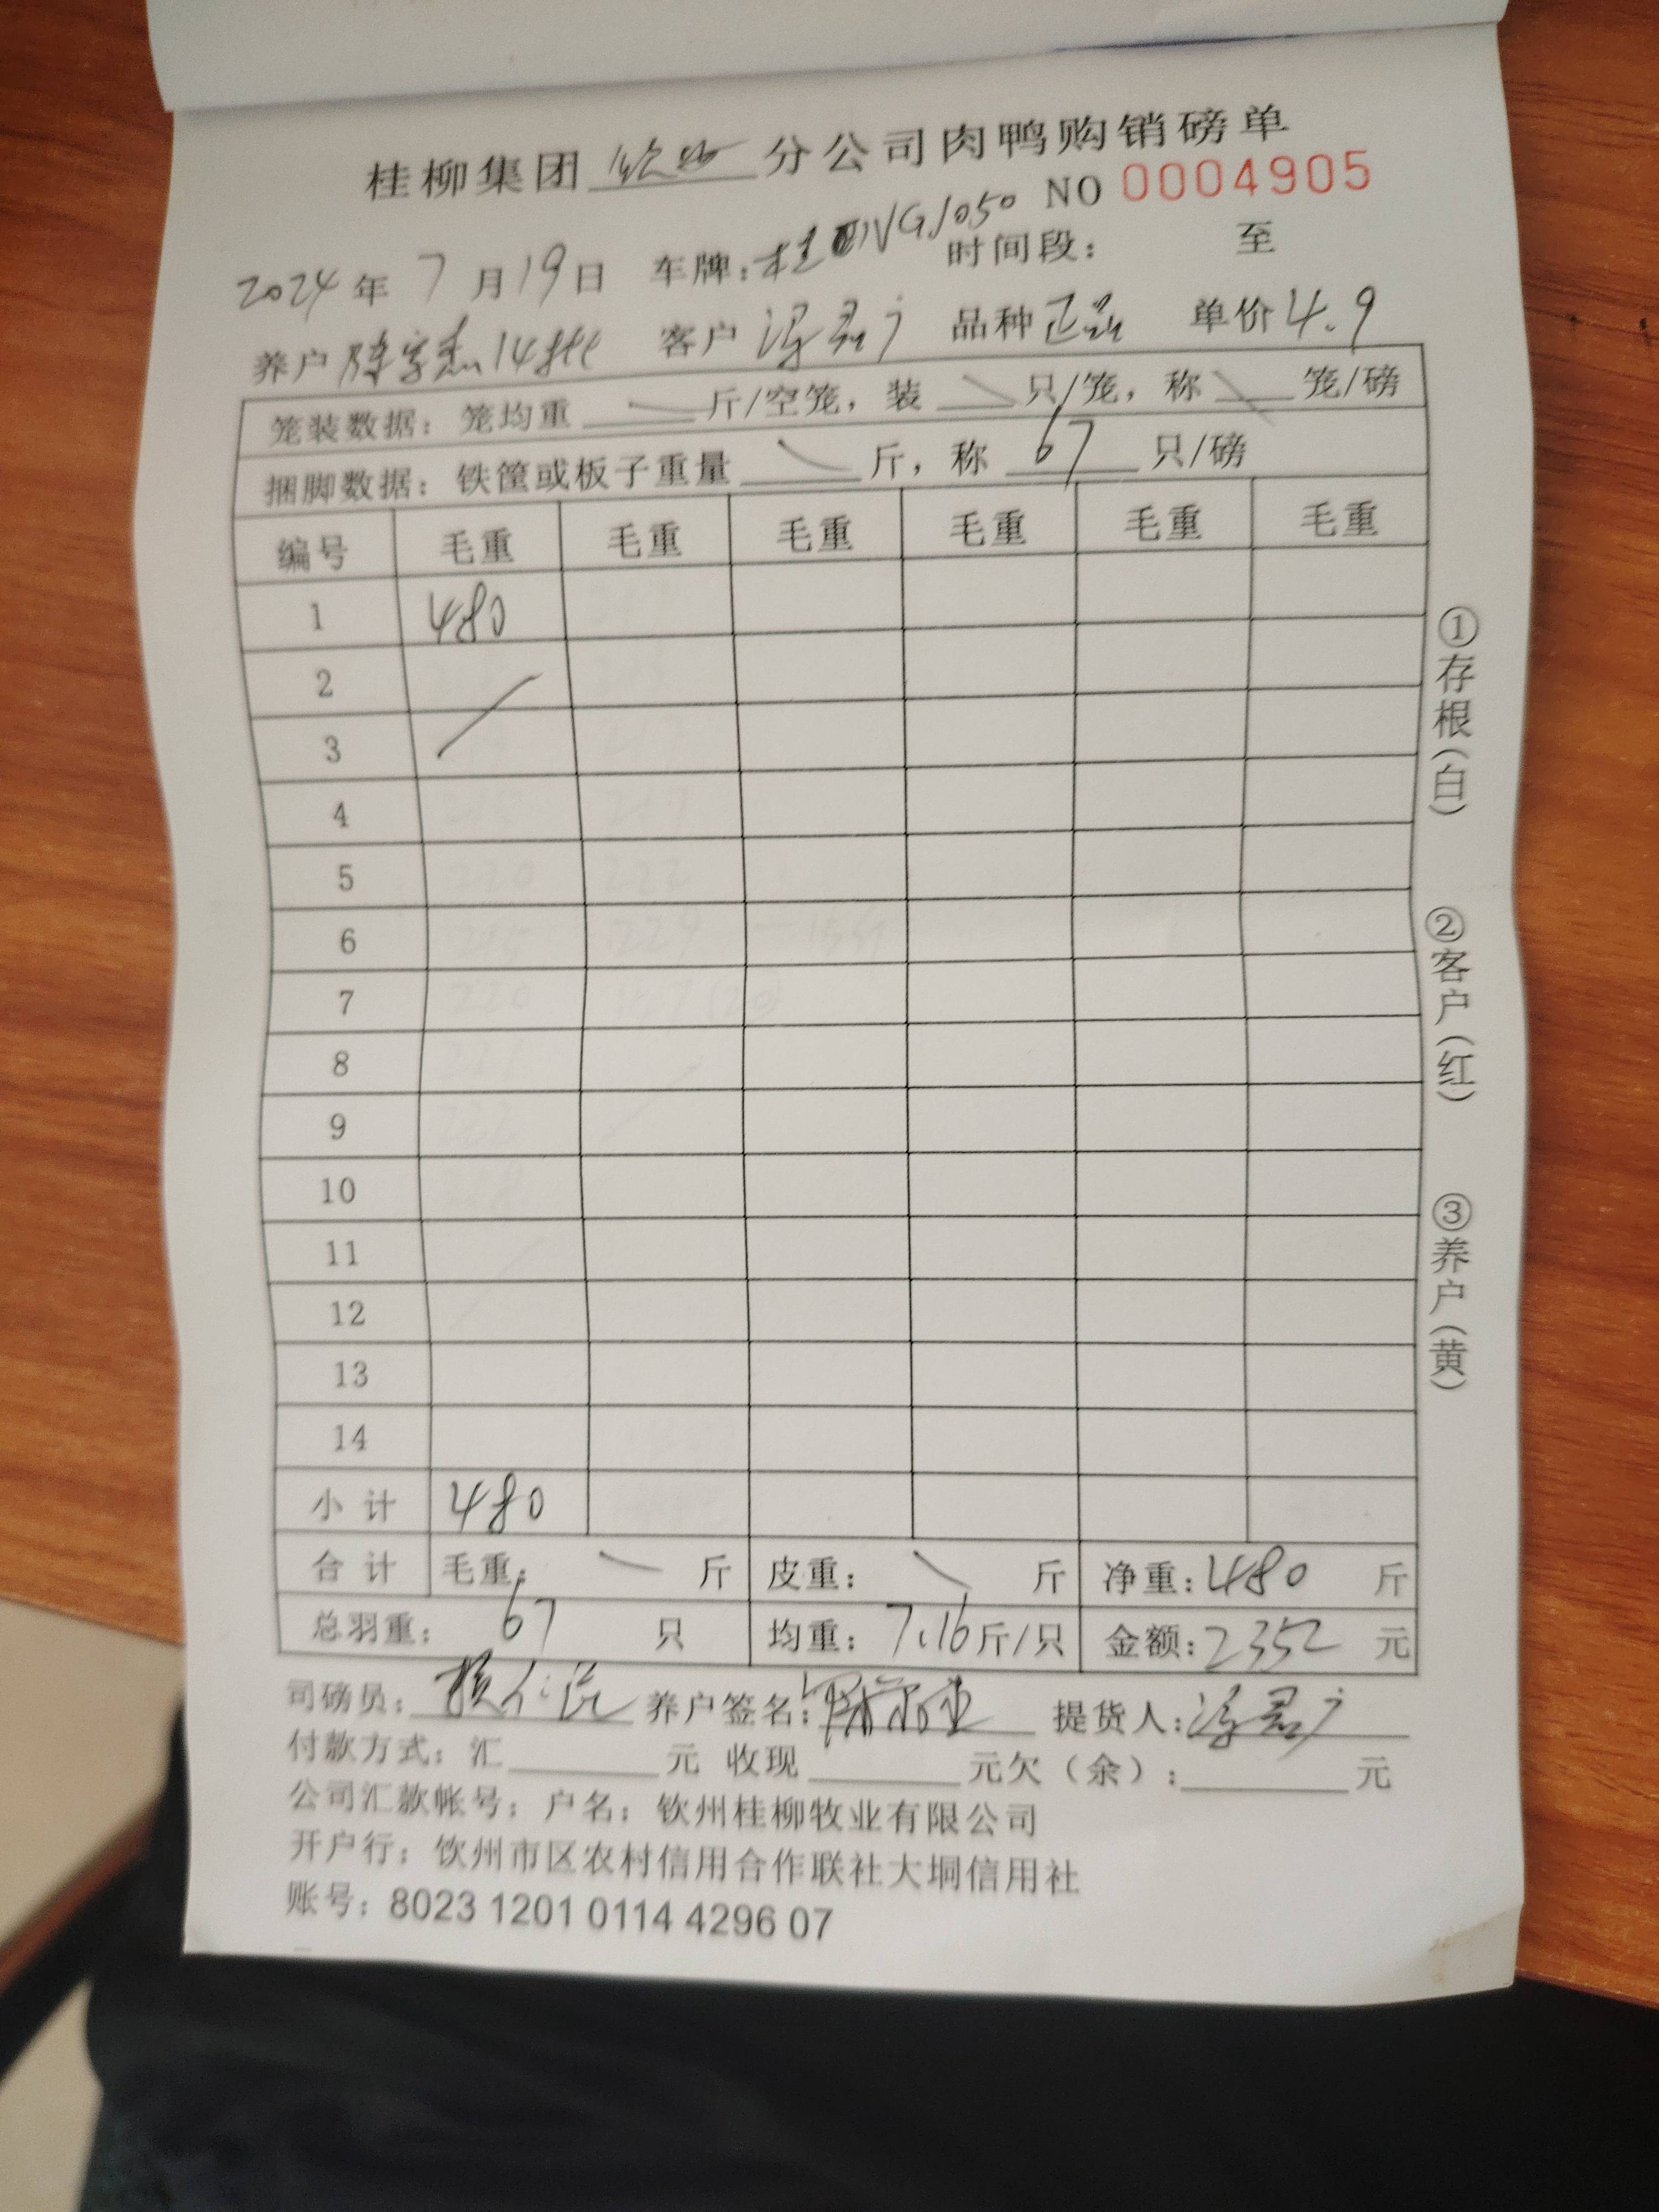 桂柳集团 钦州 分公司肉鸭购销磅单
NO 0004905
2024年 7月19日 车牌: 时间段: 至
养户 陈 14批 客户 品种 正品 单价 4.9
笼装数据: 笼均重 斤/空笼, 装 只/笼, 称 笼/磅
捆脚数据: 铁筐或板子重量 斤, 称 67 只/磅
编号 毛重 毛重 毛重 毛重 毛重 毛重
1 480
2
3
4
5
6
7
8
9
10
11
12
13
14
小计 480
合计 毛重: 斤 皮重: 斤 净重: 480 斤
总羽重: 67 只 均重: 7.16 斤/只 金额: 2352 元
司磅员: 养户签名: 提货人:
付款方式: 汇 元 收现 元欠(余): 元
公司汇款帐号: 户名: 钦州桂柳牧业有限公司
开户行: 饮州市区农村信用合作联社大垌信用社
账号: 8023 1201 0114 4296 07
①存根(白)
②客户(红)
③养户(黄)